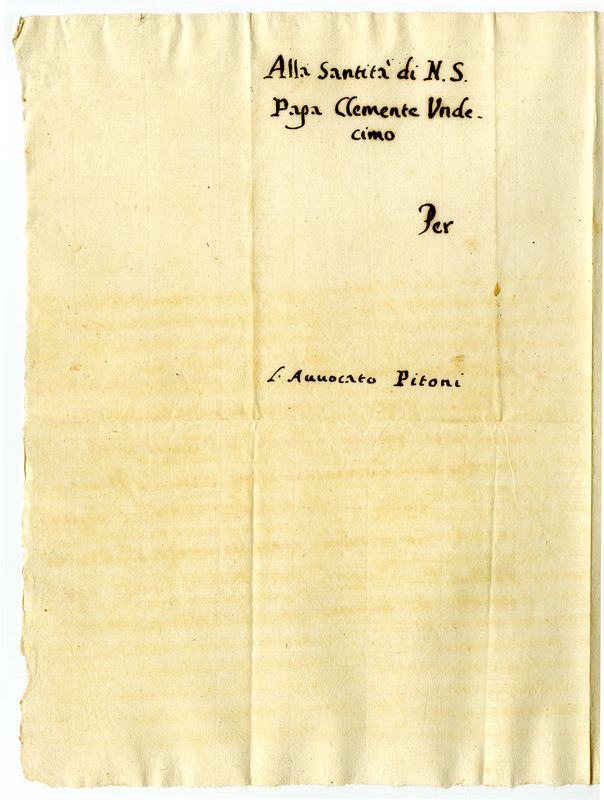 Alla Santità di N. S.
Papa Clemente Vnde-
cimo
Per
L. Auuocato Pitoni